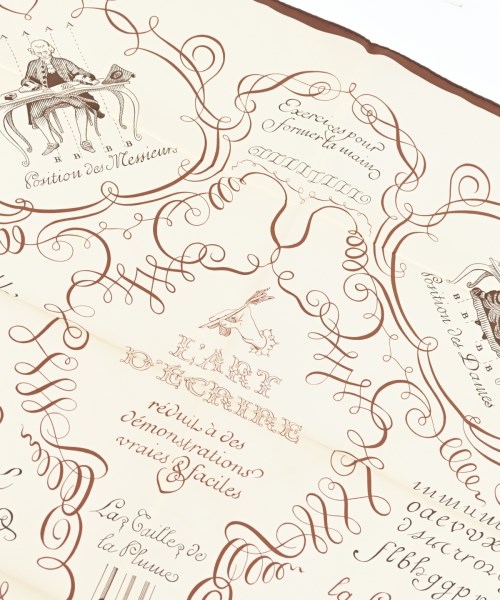 B B B B
Position des Messieurs
Exercices pour
former la main
B B B
Position des Dames
L'ART
D'ÉCRIRE
réduit à des
démonstrations
vraies & faciles
La Taille de
la Plume